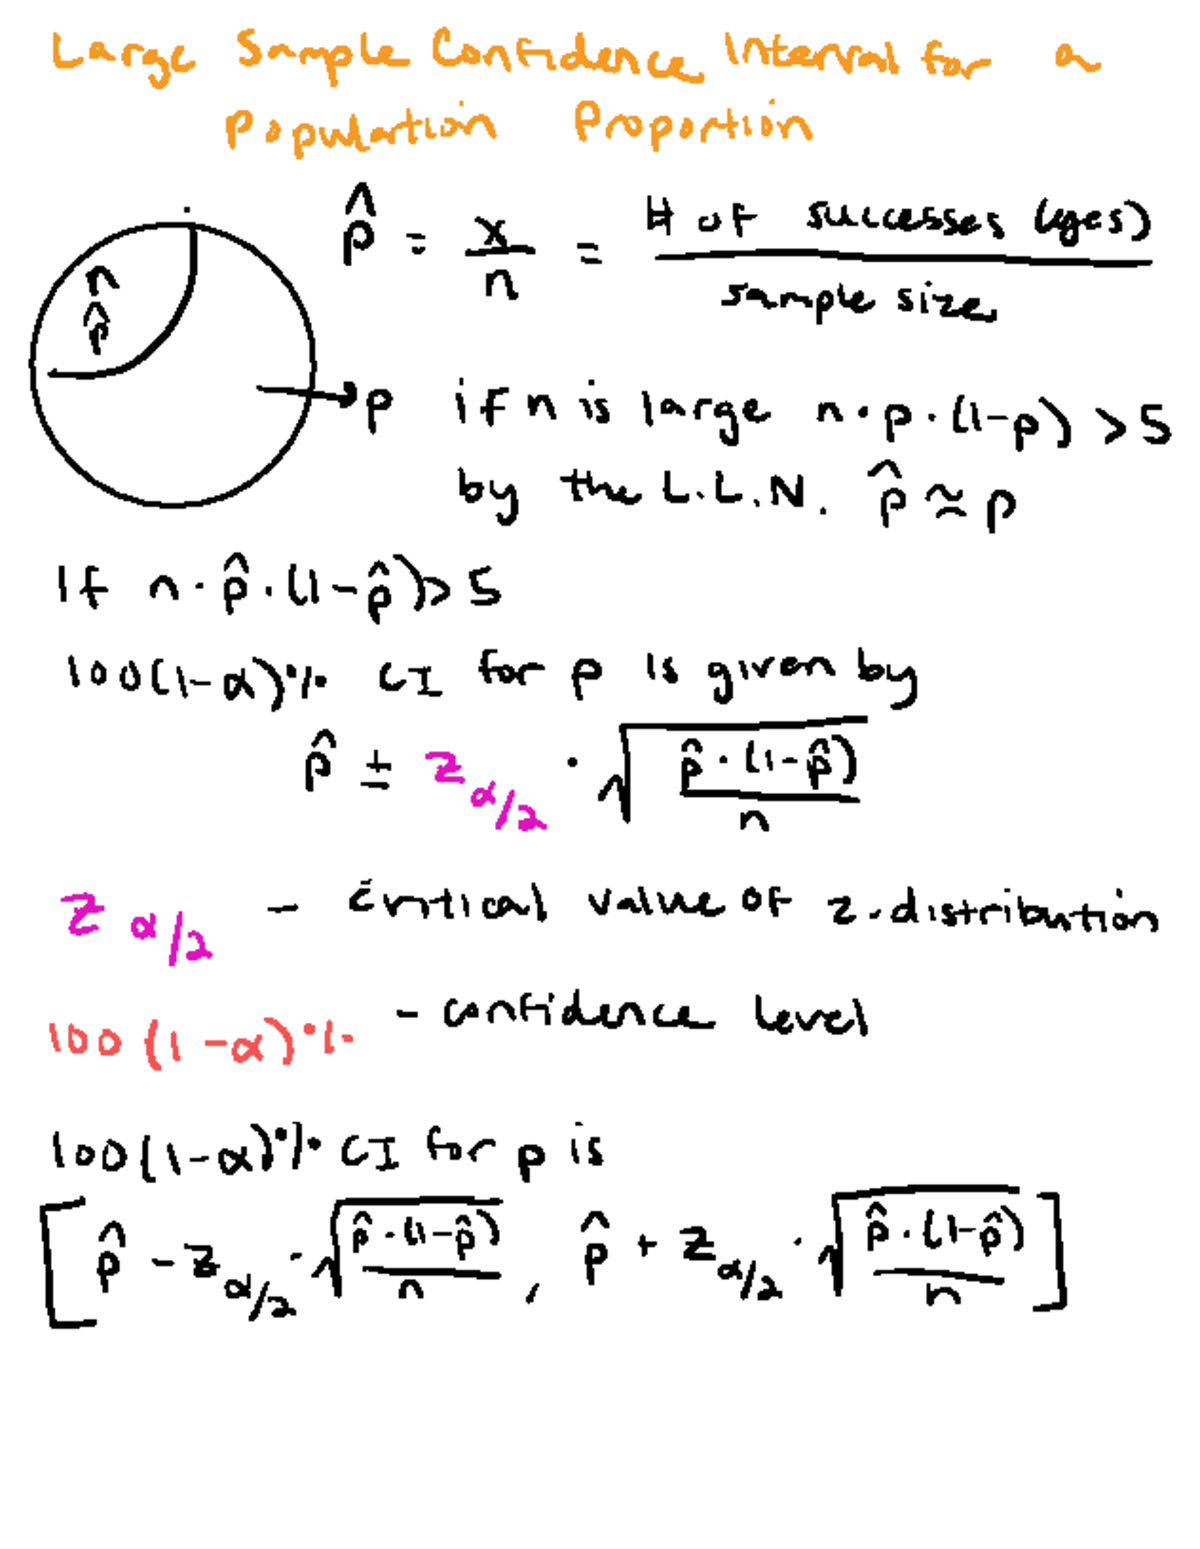 Large Sample Confidence Interval for a
Population Proportion
p̂ = x/n = # of successes (yes) / sample size
n
p̂
p if n is large n·p·(1-p) > 5
by the L.L.N. p̂ ≈ p
If n·p̂·(1-p̂) > 5
100(1-α)% CI for p is given by
p̂ ± z α/2 · √ p̂·(1-p̂) / n
z α/2 - critical value of z-distribution
100(1-α)% - confidence level
100(1-α)% CI for p is
[p̂ - z α/2 · √ p̂·(1-p̂) / n , p̂ + z α/2 · √ p̂·(1-p̂) / n]